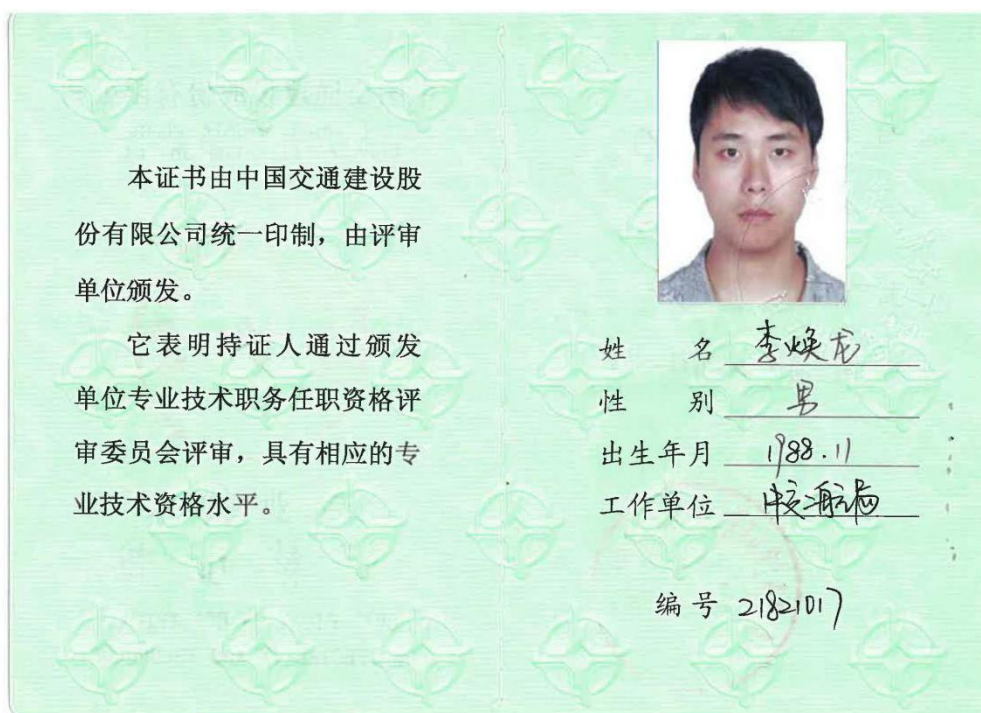 本证书由中国交通建设股
份有限公司统一印制，由评审
单位颁发。
它表明持证人通过颁发
单位专业技术职务任职资格评
审委员会评审，具有相应的专
业技术资格水平。
姓 名 李焕龙
性 别 男
出生年月 1988.11
工作单位 中交三航局
编号 21821017